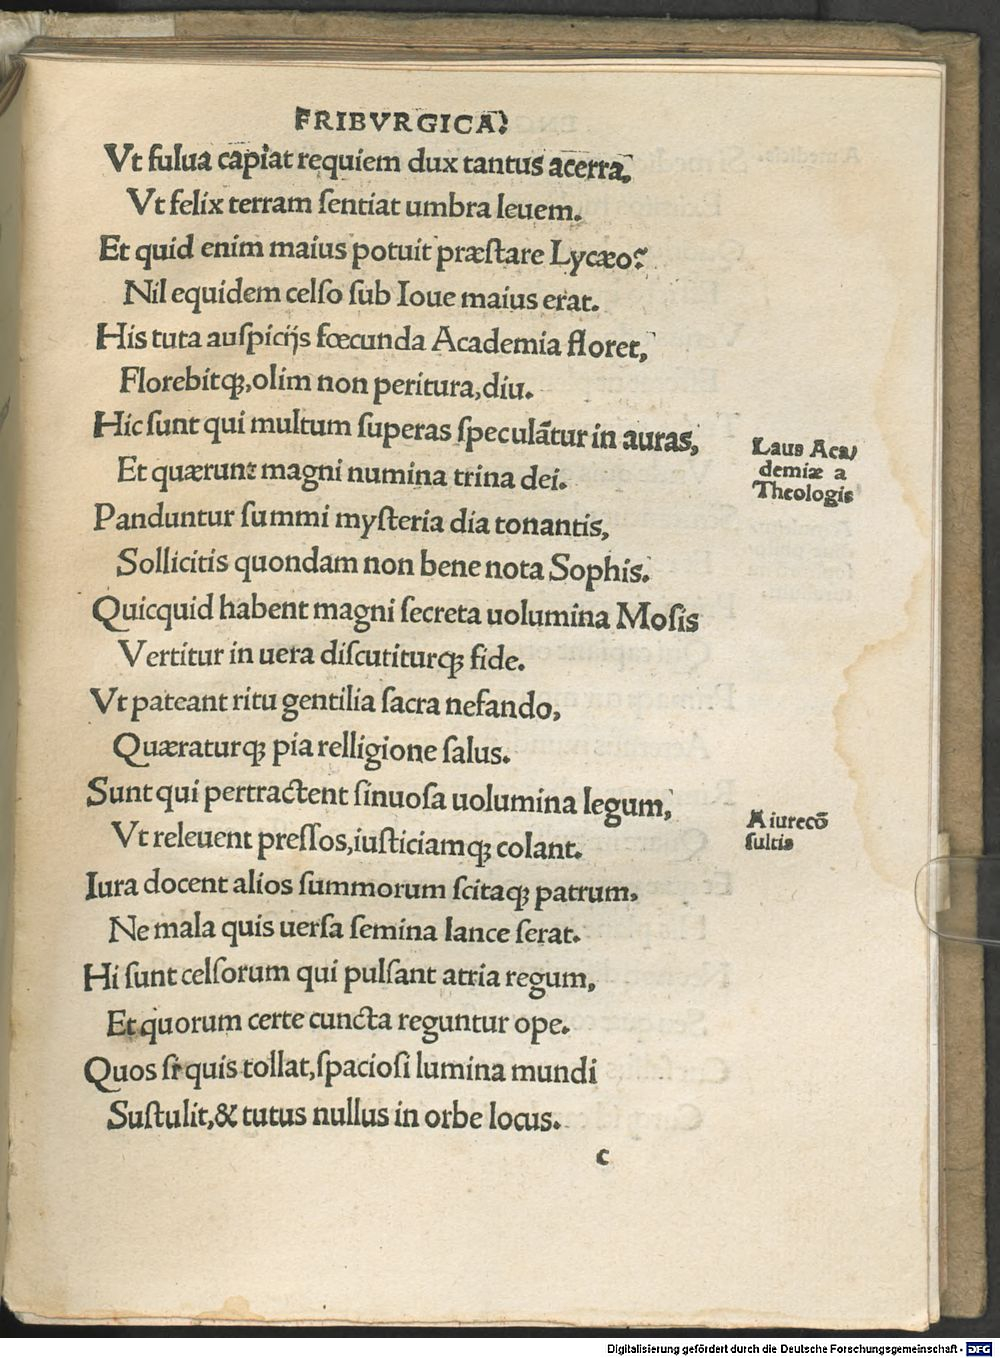 FRIBVRGICA.
Vt fulua capiat requiem dux tantus acerra,
Vt felix terram ſentiat umbra leuem.
Et quid enim maius potuit præſtare Lycæo?
Nil equidem celſo ſub Ioue maius erat.
His tuta auſpicijs fœcunda Academia floret,
Florebitq́;,olim non peritura,diu.
Hic ſunt qui multum ſuperas ſpeculãtur in auras,
Laus Aca/
demiæ a
Theologis
Et quærunt magni numina trina dei.
Panduntur ſummi myſteria dia tonantis,
Sollicitis quondam non bene nota Sophis.
Quicquid habent magni ſecreta uolumina Moſis
Vertitur in uera diſcutiturq́; fide.
Vt pateant ritu gentilia ſacra nefando,
Quæraturq́; pia relligione ſalus.
Sunt qui pertractent ſinuoſa uolumina legum,
A iurecõ
ſultis
Vt releuent preſſos,iuſticiamq́; colant.
Iura docent alios ſummorum ſcitaq́; patrum,
Ne mala quis uerſa ſemina lance ſerat.
Hi ſunt celſorum qui pulſant atria regum,
Et quorum certe cuncta reguntur ope.
Quos ſi quis tollat,ſpacioſi lumina mundi
Suſtulit,& tutus nullus in orbe locus.
c
Digitalisierung gefördert durch die Deutsche Forschungsgemeinschaft - DFG